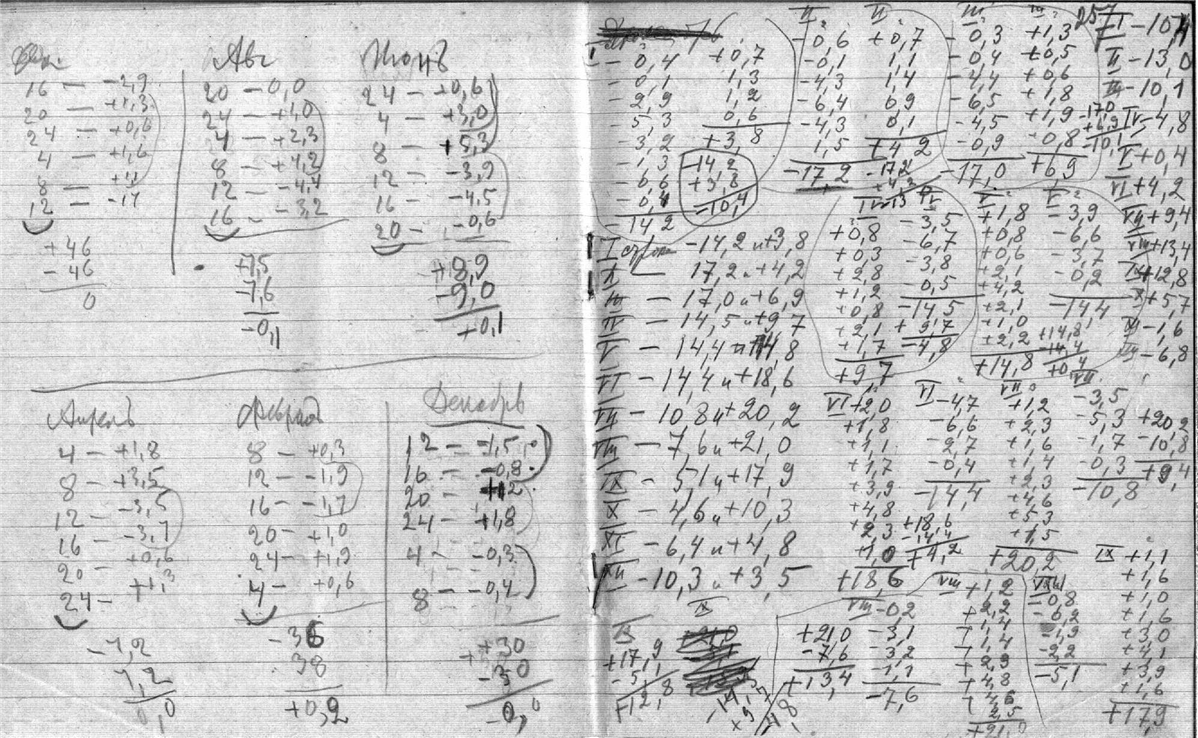 Авг
20 — 0,0
24 — +1,0
4 — +2,3
8 — +4,2
12 — -4,4
16 — -3,2
+7,5
-7,6
-0,1
Июнь
24 — +0,6
4 — +3,0
8 — +5,3
12 — -3,9
16 — -4,5
20 — -0,6
+8,9
-9,0
+0,1
16 — -2,9
20 — +1,3
24 — +0,6
4 — +1,6
8 —
12 —
+46
-46
0
Апрель
4 — +1,8
8 — +3,5
12 — -3,5
16 — -3,7
20 — +0,6
24 — +1,3
-7,2
7,2
0,0
Февраль
8 — +0,3
12 — -1,9
16 — -1,7
20 — +1,0
24 — +1,9
4 — +0,6
-36
38
+0,2
Декабрь
12 — -1,5
16 — -0,8
20 — +1,2
24 — +1,8
4 — -0,3
8 — -0,4
+30
-30
257
I
-0,4
-0,1
-2,9
-5,3
-3,2
-1,3
-0,6
-0,4
14,2
+0,7
1,3
1,2
0,6
+3,8
-14,2
+3,8
-10,4
II
-0,6
-0,1
-4,3
-6,4
-4,3
1,5
-17,2
II
+0,7
1,1
1,4
0,9
0,1
+4,2
-17,2
+4,2
III
-0,3
-0,4
-4,4
-6,5
-4,5
-0,9
-17,0
III
+1,3
+0,5
+0,6
+1,8
+1,9
+0,8
+6,9
-17,0
+6,9
-10,1
I -10,4
II -13,0
III -10,1
IV -4,8
V +0,4
VI +4,2
VII +9,4
VIII +13,4
IX +12,8
X +5,7
XI -1,6
XII -6,8
I -14,2 и +3,8
II — 17,2 и +4,2
III — 17,0 и +6,9
IV — 14,5 и +9,7
V — 14,4 и +14,8
VI — 14,4 и +18,6
VII — 10,8 и +20,2
VIII — 7,6 и +21,0
IX — 5,1 и +17,9
X — 4,6 и +10,3
XI — 6,4 и +4,8
XII — 10,3 и +3,5
IV
+0,8
+0,3
+2,8
+1,2
+0,8
+2,1
+1,7
+9,7
IV
-3,5
-6,7
-3,8
-0,5
-14,5
+9,7
-4,8
V
+1,8
+0,8
+0,6
+2,1
+4,2
+2,1
+1,0
+2,2
+14,8
V
-3,9
-6,6
-3,7
-0,2
-14,4
+14,8
-14,4
+0,4
VI
+2,0
+1,8
+1,1
+1,7
+3,9
+4,8
+2,3
+1,0
+18,6
VI
-4,7
-6,6
-2,7
-0,4
-14,4
+18,6
-14,4
+4,2
VII
+1,2
+2,3
+1,6
+1,4
+2,3
+4,6
+5,3
+1,5
+20,2
VII
-3,5
-5,3
-1,7
-0,3
-10,8
+20,2
-10,8
+9,4
IX
+17,9
-5,1
+12,8
IX
VIII
-0,2
-3,1
-3,2
-1,1
-7,6
+21,0
-7,6
+13,4
VIII
+1,2
+2,2
+1,4
+1,4
+2,9
+4,8
4,6
2,5
+21,0
VIII
-0,8
-0,2
-1,9
-2,2
-5,1
IX
+1,1
+1,6
+1,0
+1,6
+3,0
+4,1
+3,9
+1,6
+17,9